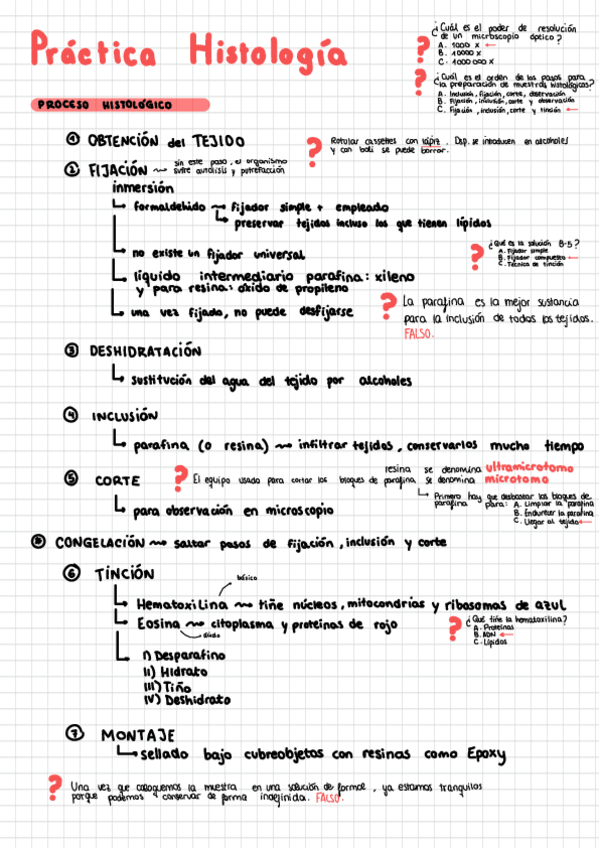 Práctica Histología
¿Cuál es el poder de resolución
de un microscopio óptico?
A. 1000 x ←
B. 10000 x
C. 1000 000 x
¿Cuál es el orden de los pasos para
la preparación de muestras histológicas?
A. Inclusión, fijación, corte, observación
B. Fijación, inclusión, corte y observación
C. Fijación, inclusión, corte y tinción ←
PROCESO HISTOLÓGICO
① OBTENCIÓN del TEJIDO
? Rotular cassettes con lápiz. Dsp. se introducen en alcoholes
y con boli se puede borrar.
② FIJACIÓN ~> sin este paso, el organismo
sufre autolisis y putrefacción
inmersión
formaldehído → fijador simple + empleado
preservar tejidos incluso los que tienen lípidos
no existe un fijador universal
? ¿Qué es la solución B-5?
A. Fijador simple
B. Fijador compuesto ←
C. Técnica de tinción
líquido intermediario parafina: xileno
y para resina: óxido de propileno
una vez fijado, no puede desfijarse
? La parafina es la mejor sustancia
para la inclusión de todos los tejidos.
FALSO.
③ DESHIDRATACIÓN
sustitución del agua del tejido por alcoholes
④ INCLUSIÓN
parafina (o resina) ~> infiltrar tejidos, conservarlos mucho tiempo
⑤ CORTE
? El equipo usado para cortar los bloques de
resina se denomina ultramicrotomo
parafina se denomina microtomo
para observación en microscopio
Primero hay que desbastar los bloques de
parafina para: A. Limpiar la parafina
B. Endurecer la parafina
C. Llegar al tejido ←
CONGELACIÓN ~> saltar pasos de fijación, inclusión y corte
⑥ TINCIÓN
básico
Hematoxilina ~> tiñe núcleos, mitocondrias y ribosomas de azul
Eosina ~> citoplasma y proteínas de rojo
ácida
? ¿Qué tiñe la hematoxilina?
A. Proteínas
B. ADN ←
C. Lípidos
I) Desparafino
II) Hidrato
III) Tiño
IV) Deshidrato
⑦ MONTAJE
sellado bajo cubreobjetos con resinas como Epoxy
? Una vez que coloquemos la muestra en una solución de formol, ya estamos tranquilos
porque podemos conservar de forma indefinida. FALSO.